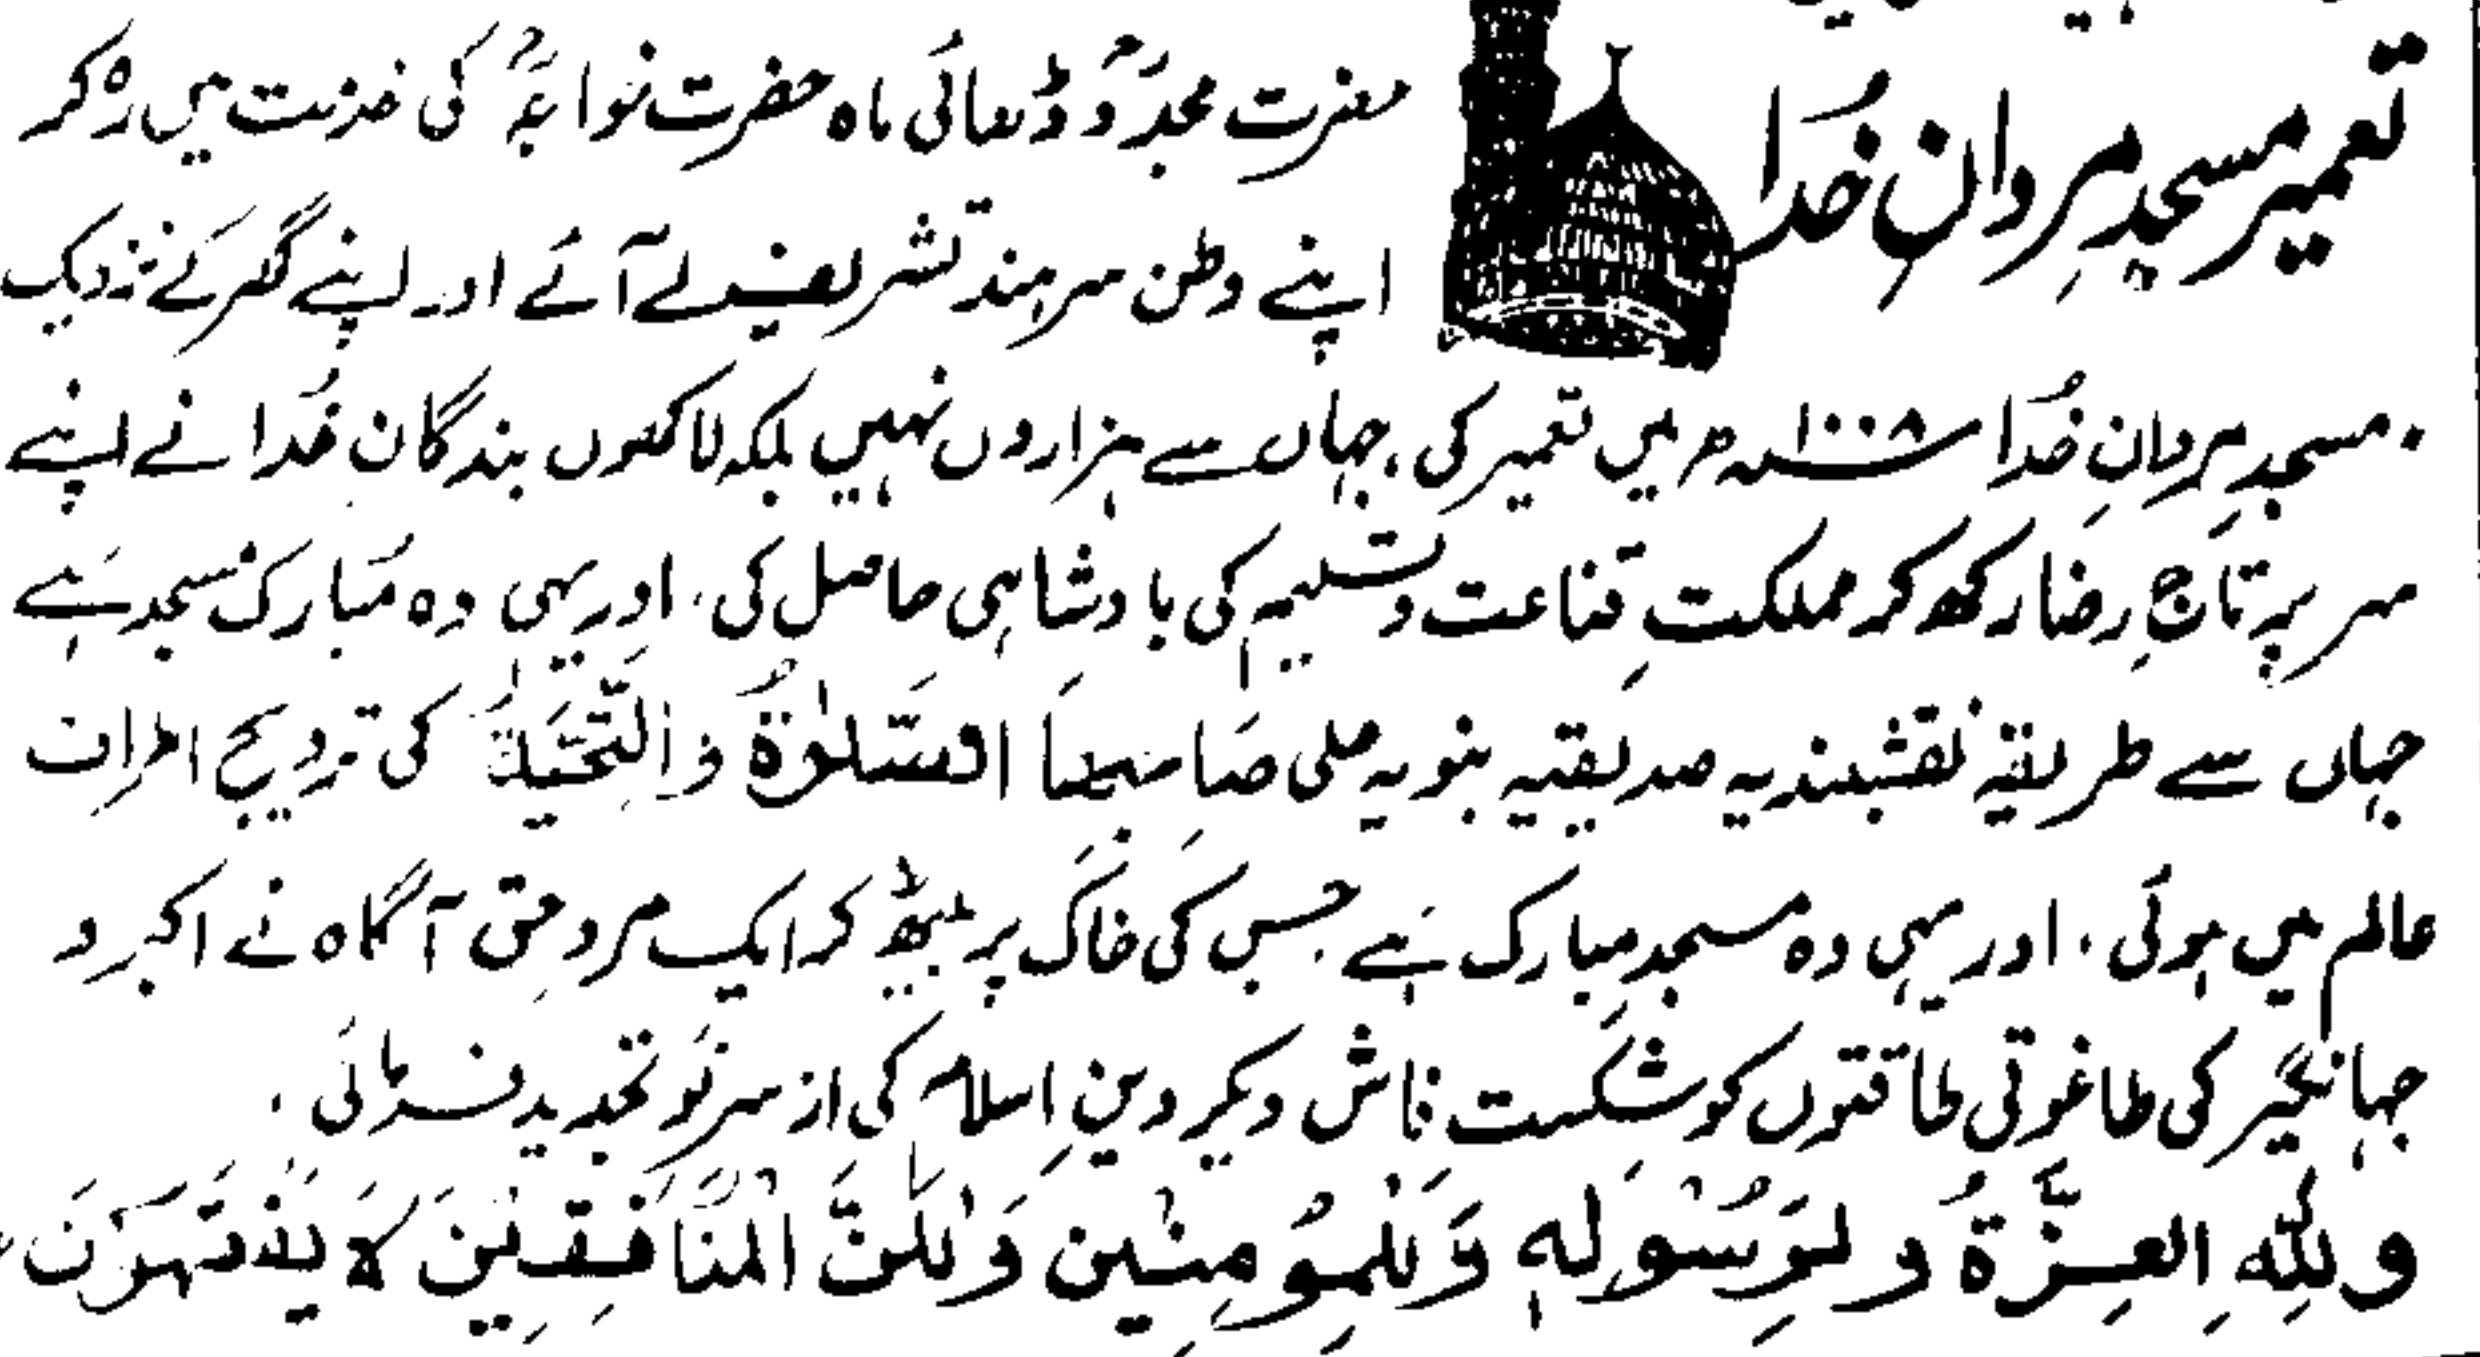 تعمیر مسجدِ مردانِ خُدا
حضرت مجدّدؒ ڈھائی ماہ حضرت خواجہؒ کی خدمت میں رہ کر
اپنے وطن سرہند تشریف لے آئے اور اپنے گھر کے نزدیک
مسجدِ مردانِ خُدا ۱۰۰۸ھ میں تعمیر کی، جہاں سے ہزاروں نہیں بلکہ لاکھوں بندگان خُدا نے اپنے
سر پر تاجِ رضا رکھ کر مملکتِ قناعت و تسلیم کی بادشاہی حاصل کی، اور یہی وہ مُبارک مسجد ہے
جہاں سے طریقۂ نقشبندیہ صدیقیہ نبویہ علی صاحبھا الصّلوٰۃُ والتّحیّۃ کی ترویج اطراف
عالم میں ہوئی، اور یہی وہ مسجدِ مبارک ہے، جس کی خاک پر بیٹھ کر ایک مردِ حق آگاہ نے اکبر و
جہانگیر کی طاغوتی طاقتوں کو شکست فاش دیکر دینِ اسلام کی از سرِ نو تجدید فرمائی،
وَلِلّٰہِ العِزَّۃُ وَلِرَسُوْلِہٖ وَلِلْمُؤْمِنِیْنَ وَلٰکِنَّ الْمُنَافِقِیْنَ لَا یَفْقَہُوْنَ